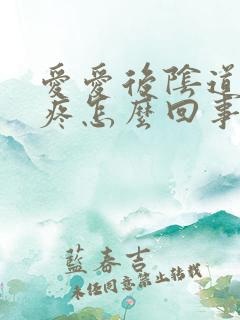 愛愛後陰道
疼怎麼回事
藍春吉
未经同意禁止转载